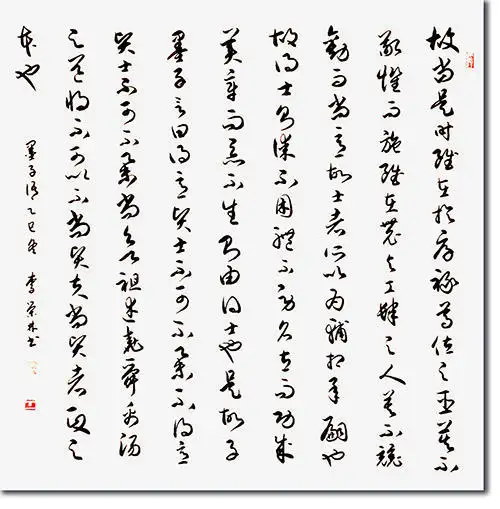 故當是時雖在於厚祿尊位之臣莫不
敬懼而施雖在農與工肆之人莫不競
勸而尚意故士者所以為輔相承嗣也
故得士則謀不困體不勞名立而功成
美章而惡不生則由得士也是故子
墨子言曰得意賢士不可不舉不得意
賢士不可不舉尚欲祖述堯舜禹湯
之道將不可以不尚賢夫尚賢者政之
本也
墨子語乙巳 李榮林書